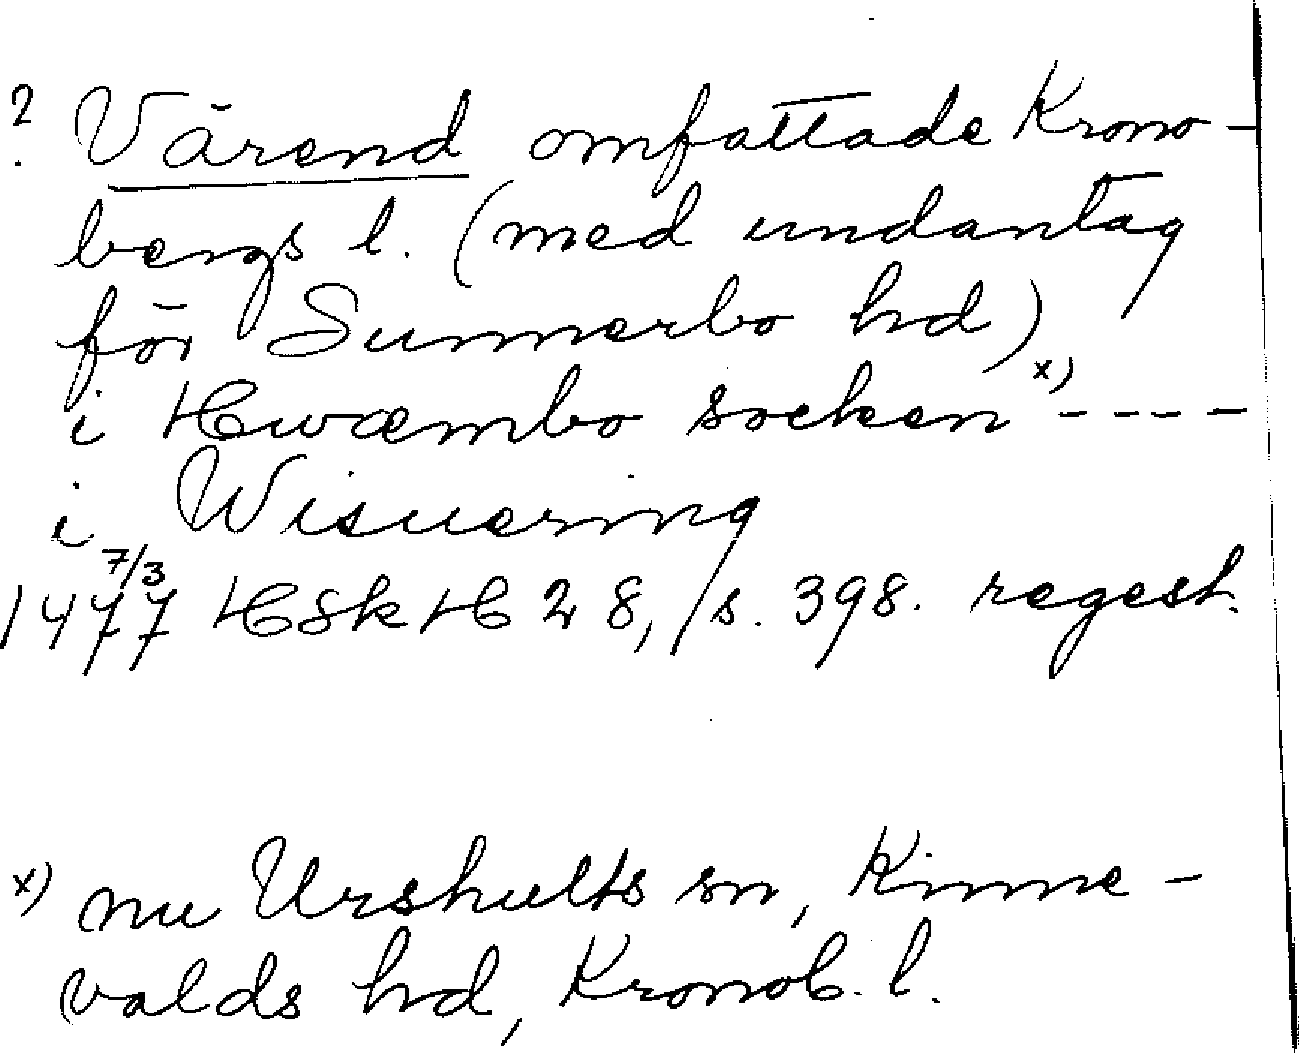 ? Värend omfattade Krono-
bergs l. (med undantag
för Sunnerbo hd)
i Hwæmbo socken x) ----
i Wisuering
7/3
1477 HSkH 28, s. 398. regest.
x) nu Urshults sn, Kinne-
valds hd, Kronob. l.